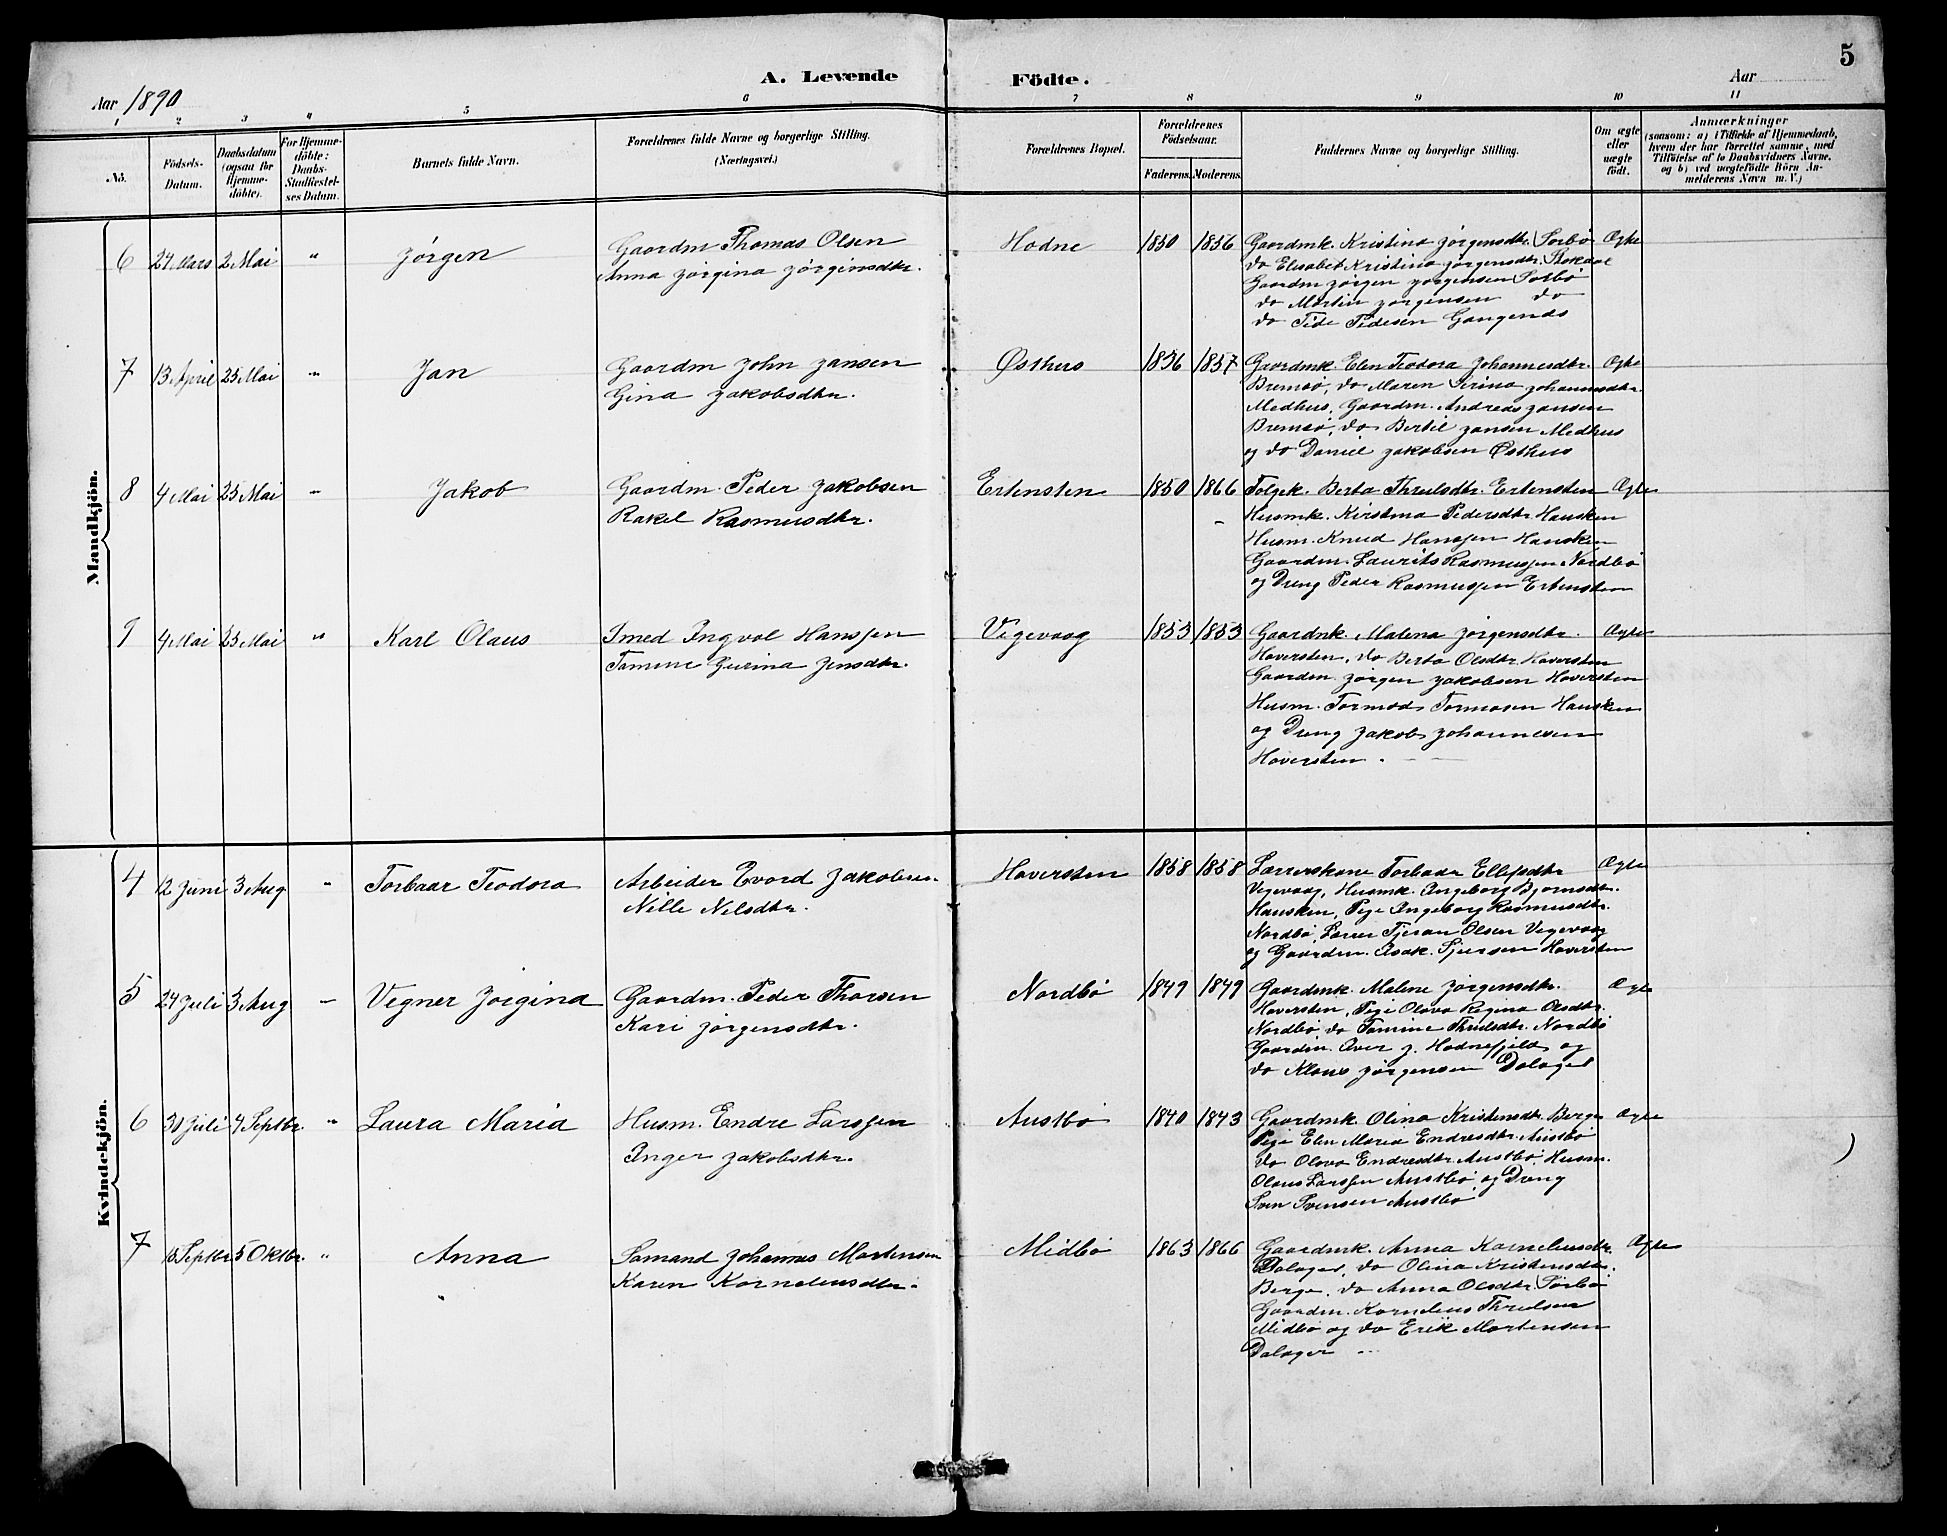 5
A. Levende Födte.
Aar 1890
Aar
1 2 3 4 5 6 7 8 9 10 11
No.
Födsels-Datum.
Daabsdatum (ogsaa for Hjemme-döbte).
For Hjemme-döbte: Daabs-Stadfæstel-ses Datum.
Barnets fulde Navn.
Forældrenes fulde Navne og borgerlige Stilling. (Næringsvei.)
Forældrenes Bopæl.
Forældrenes Födselsaar.
Faderens. Moderens.
Faddernes Navne og borgerlige Stilling.
Om ægte eller uægte födt.
Anmærkninger
(saasom: a) i Tilfælde af Hjemmedaab, hvem der har forrettet samme, med Tilföielse af to Daabsvidners Navne, og b) ved uægtefödte Börn An-melderens Navn m. V.)
Mandkjön.
6 27 Mars 2 Mai " Jørgen
Gaardm Thomas Olsen
Anna Jørgina Jørginsdtr.
Hodne 1850 1856
Gaardmk. Kristina Jørgensdtr. Sørbø
do Elisabet Kristina Jørgensdtr.
Gaardm Jørgen Jørgensen Sørbø
do Martin Jørgensen do
do Pedersen
Ægte
7 13 April 25 Mai " Jan
Gaardm John Jansen
Gina Jakobsdtr.
Østhus 1856 1857
Gaardmk. Elen Teodora Johannesdtr.
Bremsø, do Maren Serina Johannesdtr.
Medhus, Gaardm. Andreas Jansen
Bremsø, do Bertil Jansen Medhus
og do Daniel Jakobsen Østhus
Ægte
8 4 Mai 25 Mai " Jakob
Gaardm. Peder Jakobsen
Rakel Rasmusdtr.
Ertensten 1850 1866
Folgek. Berta Thrulsdtr. Ertensten
Husmk. Kirstina Pedersdtr. Hausken
Husm. Knud Hansen Hausken
Gaardm. Laurits Rasmussen Nordbø
og Dreng Peder Rasmussen Ertensten
Ægte
9 4 Mai 25 Mai " Karl Olaus
Smed Ingval Hanssen
Tomine Gurina Jensdtr.
Vigevaag 1853 1853
Gaardmk. Malena Jørgensdtr.
Haversten, do Berta Olsdtr. Haversten
Gaardm Jørgen Jakobsen Haversten
Husm. Tormod Tormosen Hausken
og Dreng Jakob Johannesen
Haversten.
Ægte
Kvindekjön.
4 12 Juni 3 Aug " Torbaar Teodora
Arbeider Evard Jakobsen
Nille Nilsdtr.
Haversten 1858 1858
Lærerskone Torbaar Ellefsdtr
Vegevaag, Husmk. Ingeborg Bjørnsdtr.
Hausken, Pige Ingeborg Rasmusdtr.
Nordbø, Lærer Tjeran Olsen Vegevaag
og Gaardm. Isak Sjursen Haversten
Ægte
5 24 Juli 3 Aug " Vegner Jorgina
Gaardm. Peder Thorsen
Kari Jørgensdtr.
Nordbø 1849 1849
Gaardmk. Malene Jørgensdtr.
Haversten, Pige Olava Regina Olsdtr.
Nordbø, do Tomine Thrulsdtr. Nordbø
Gaardm. Iver J. Hodnefjeld og
do Klaus Jørgensen Dalager
Ægte
6 30 Juli 7 Septbr. " Laura Maria
Husm. Endre Larssen
Inger Jakobsdtr.
Austbø 1840 1843
Gaardmk Olina Kristensdtr. Berge
Pige Elen Maria Endresdtr. Austbø
do Olava Endresdtr. Austbø, Husm.
Olaus Larssen Austbø og Dreng
Sven Svensen Austbø
Ægte
7 Septbr 5 Oktbr. " Anna
Sømand Johannes Mortensen
Karen Korneliusdtr.
Midbø 1863 1866
Gaardmk. Anna Korneliusdtr.
Dalager, do Olina Kristensdtr.
Berge, do Anna Olsdtr. Sørbø
Gaardm. Kornelius Thrulsen
Midbø og do Erik Mortensen
Dalager
Ægte